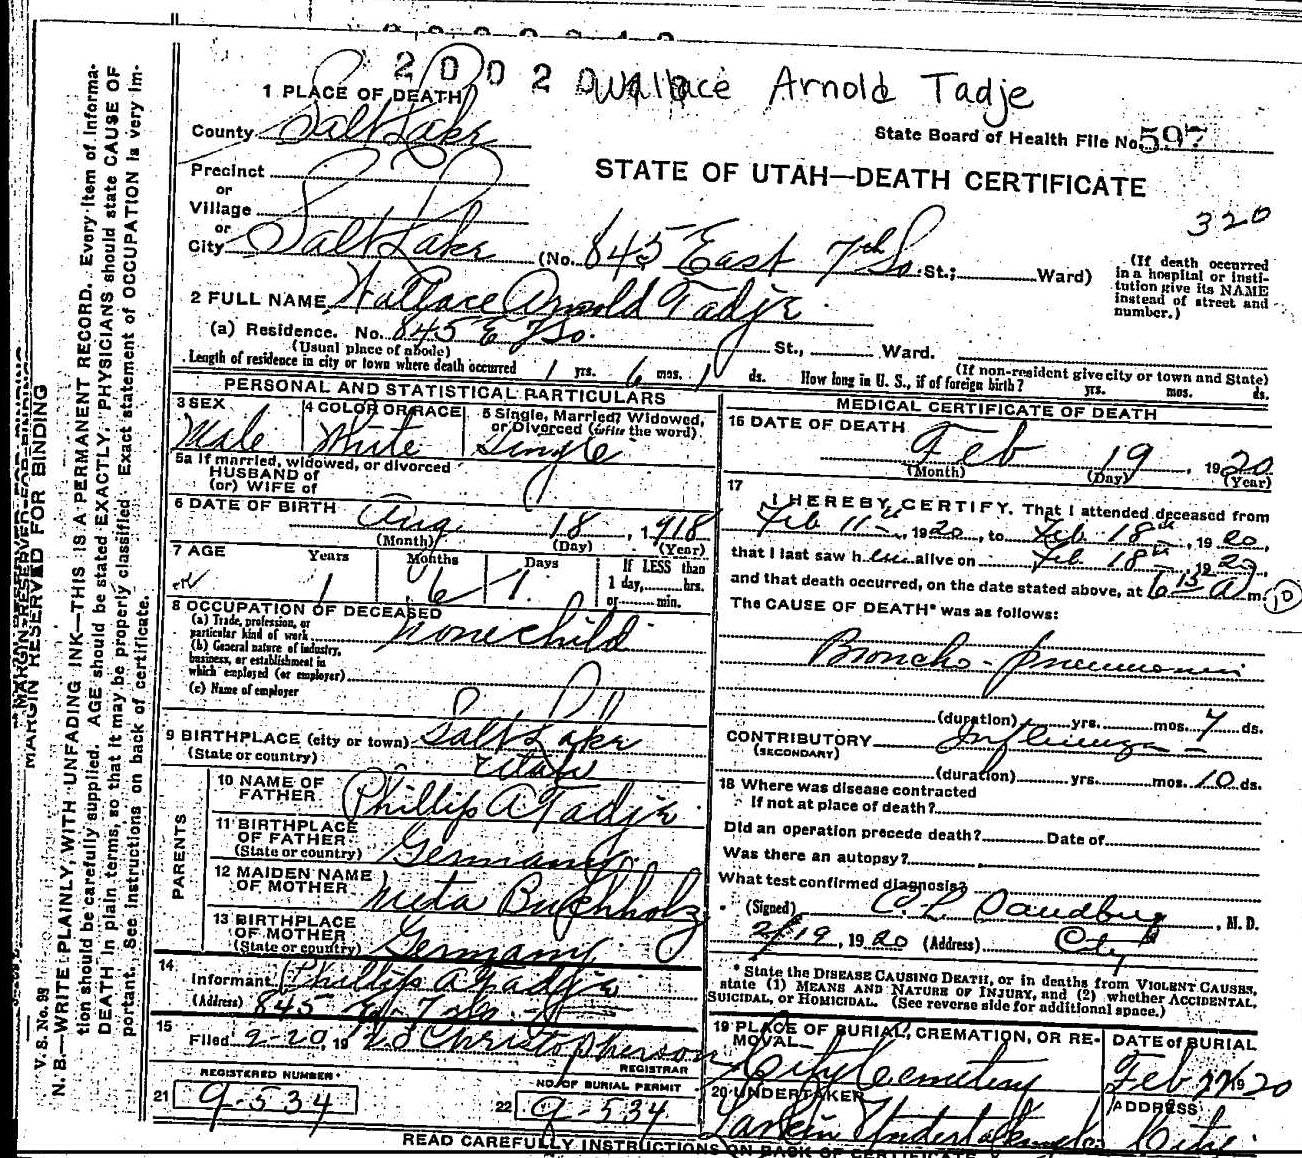 2 0 0 2 0 Wallace Arnold Tadje
1 PLACE OF DEATH
County Salt Lake
State Board of Health File No. 597
Precinct
or
Village
or
City Salt Lake
STATE OF UTAH—DEATH CERTIFICATE
320
(No. 845 East 7th So. St.; Ward)
(If death occurred
in a hospital or insti-
tution give its NAME
instead of street and
number.)
2 FULL NAME Wallace Arnold Tadje
(a) Residence. No. 845 E 7 So. St., Ward.
(Usual place of abode)
(If non-resident give city or town and State)
Length of residence in city or town where death occurred 1 yrs. 6 mos. 1 ds. How long in U. S., if of foreign birth? yrs. mos. ds.
PERSONAL AND STATISTICAL PARTICULARS
3 SEX
Male
4 COLOR OR RACE
White
5 Single, Married, Widowed,
or Divorced (write the word)
Single
5a If married, widowed, or divorced
HUSBAND of
(or) WIFE of
6 DATE OF BIRTH Aug 18, 1918
(Month) (Day) (Year)
7 AGE Years Months Days If LESS than
1 day, hrs.
or min.
1 6 1
8 OCCUPATION OF DECEASED
(a) Trade, profession, or
particular kind of work none child
(b) General nature of industry,
business, or establishment in
which employed (or employer)
(c) Name of employer
9 BIRTHPLACE (city or town) Salt Lake
(State or country) Utah
PARENTS
10 NAME OF
FATHER Phillip A Tadje
11 BIRTHPLACE
OF FATHER
(State or country) Germany
12 MAIDEN NAME
OF MOTHER Meta Buchholz
13 BIRTHPLACE
OF MOTHER
(State or country) Germany
14
Informant Phillip A Tadje
(Address) 845 E. 7 So.
15
Filed 2-20, 1920 Christopherson
REGISTRAR
REGISTERED NUMBER
21 9-534
NO. OF BURIAL PERMIT
22 9-534
MEDICAL CERTIFICATE OF DEATH
16 DATE OF DEATH
Feb 19, 1920
(Month) (Day) (Year)
17
I HEREBY CERTIFY, That I attended deceased from
Feb 11th, 1920, to Feb. 18th, 1920,
that I last saw him alive on Feb 18th, 1920,
and that death occurred, on the date stated above, at 6 15 A m. 10
The CAUSE OF DEATH* was as follows:
Broncho-pneumonia
(duration) yrs. mos. 7 ds.
CONTRIBUTORY Influenza
(SECONDARY)
(duration) yrs. mos. 10 ds.
18 Where was disease contracted
If not at place of death?
Did an operation precede death? Date of
Was there an autopsy?
What test confirmed diagnosis?
(Signed) C. L. Sandberg, M. D.
2/19, 1920 (Address) City
* State the DISEASE CAUSING DEATH, or in deaths from VIOLENT CAUSES,
state (1) MEANS AND NATURE OF INJURY, and (2) whether ACCIDENTAL,
SUICIDAL, or HOMICIDAL. (See reverse side for additional space.)
19 PLACE OF BURIAL, CREMATION, OR RE-
MOVAL
City Cemetery
DATE of BURIAL
Feb 1920
20 UNDERTAKER
Larkin Undertaking Co
ADDRESS
City
READ CAREFULLY INSTRUCTIONS ON BACK OF CERTIFICATE
V. S. No. 98
MARGIN RESERVED FOR BINDING
N. B.—WRITE PLAINLY, WITH UNFADING INK—THIS IS A PERMANENT RECORD. Every item of informa-
tion should be carefully supplied. AGE should be stated EXACTLY. PHYSICIANS should state CAUSE OF
DEATH in plain terms, so that it may be properly classified. Exact statement of OCCUPATION is very im-
portant. See instructions on back of certificate.